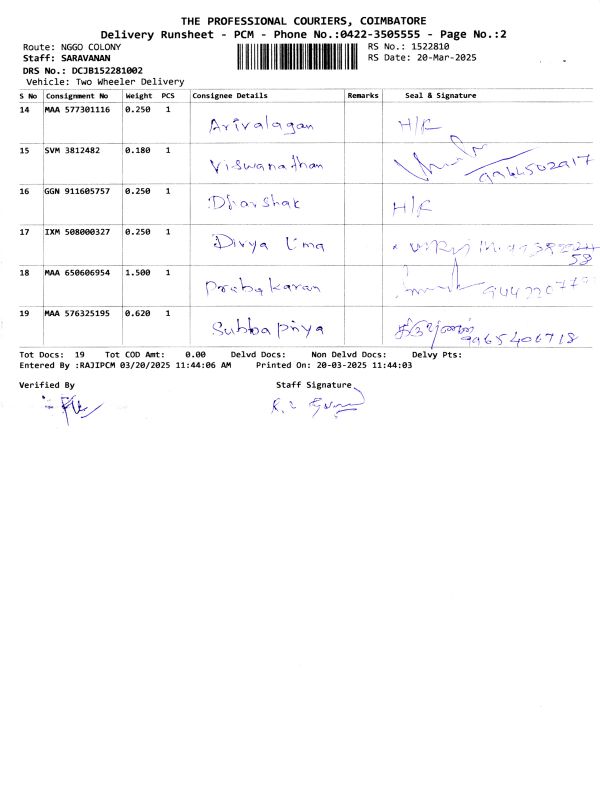 THE PROFESSIONAL COURIERS, COIMBATORE
Delivery Runsheet - PCM - Phone No.:0422-3505555 - Page No.:2
Route: NGGO COLONY
Staff: SARAVANAN
DRS No.: DCJB152281002
Vehicle: Two Wheeler Delivery
RS No.: 1522810
RS Date: 20-Mar-2025
S No Consignment No Weight PCS Consignee Details Remarks Seal & Signature
14 MAA 577301116 0.250 1 Arivalagan H/F
15 SVM 3812482 0.180 1 Viswanathan
16 GGN 911605757 0.250 1 Dharshak H/F
17 IXM 508000327 0.250 1 Divya Uma
18 MAA 650606954 1.500 1 Prabakaran
19 MAA 576325195 0.620 1 Subbapriya 9965406718
Tot Docs: 19 Tot COD Amt: 0.00 Delvd Docs: Non Delvd Docs: Delvy Pts:
Entered By :RAJIPCM 03/20/2025 11:44:06 AM Printed On: 20-03-2025 11:44:03
Verified By Staff Signature